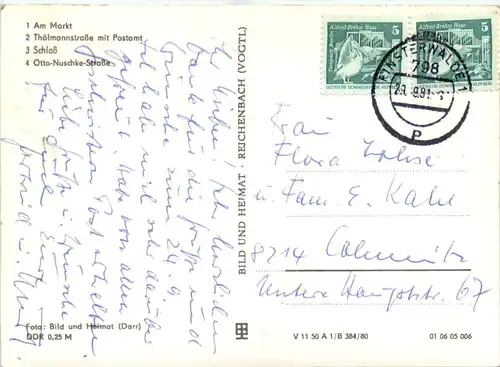 1 Am Markt
2 Thälmannstraße mit Postamt
3 Schloß
4 Otto-Nuschke-Straße
Ihr Lieben! Sehr herzlichen
Dank für die Grüße und
Wünsche zum 24.9.
Ich habe mich sehr darüber
gefreut. Habe von allen
Geschwistern Post erhalten
Liebe Grüße u. Wünsche
für Euch
Foto: Bild und Heimat (Darr)
DDR 0,25 M
BILD UND HEIMAT · REICHENBACH (VOGTL)
Alfred-Brehm-Haus 5
Tierpark Berlin
Alfred-Brehm-Haus 5
FINSTERWALDE 1
798
P
Frau
Flora
und Fam. E. Kahl
8214 Colmnitz
Untere Hauptstr. 67
V 11 50 A 1/B 384/80
01 06 05 006